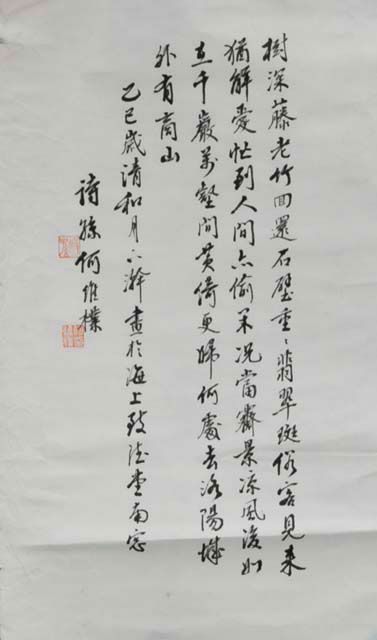 樹深藤老竹回還石壁重〻翡翠斑俗客見來
猶解愛忙到人間亦偷况當霽景涼風後如
在千巖萬壑間黃綺更歸何處去洛陽城
外有商山
乙巳歲清和月下澣畫於海上致堂南窗
詩孫何維樸